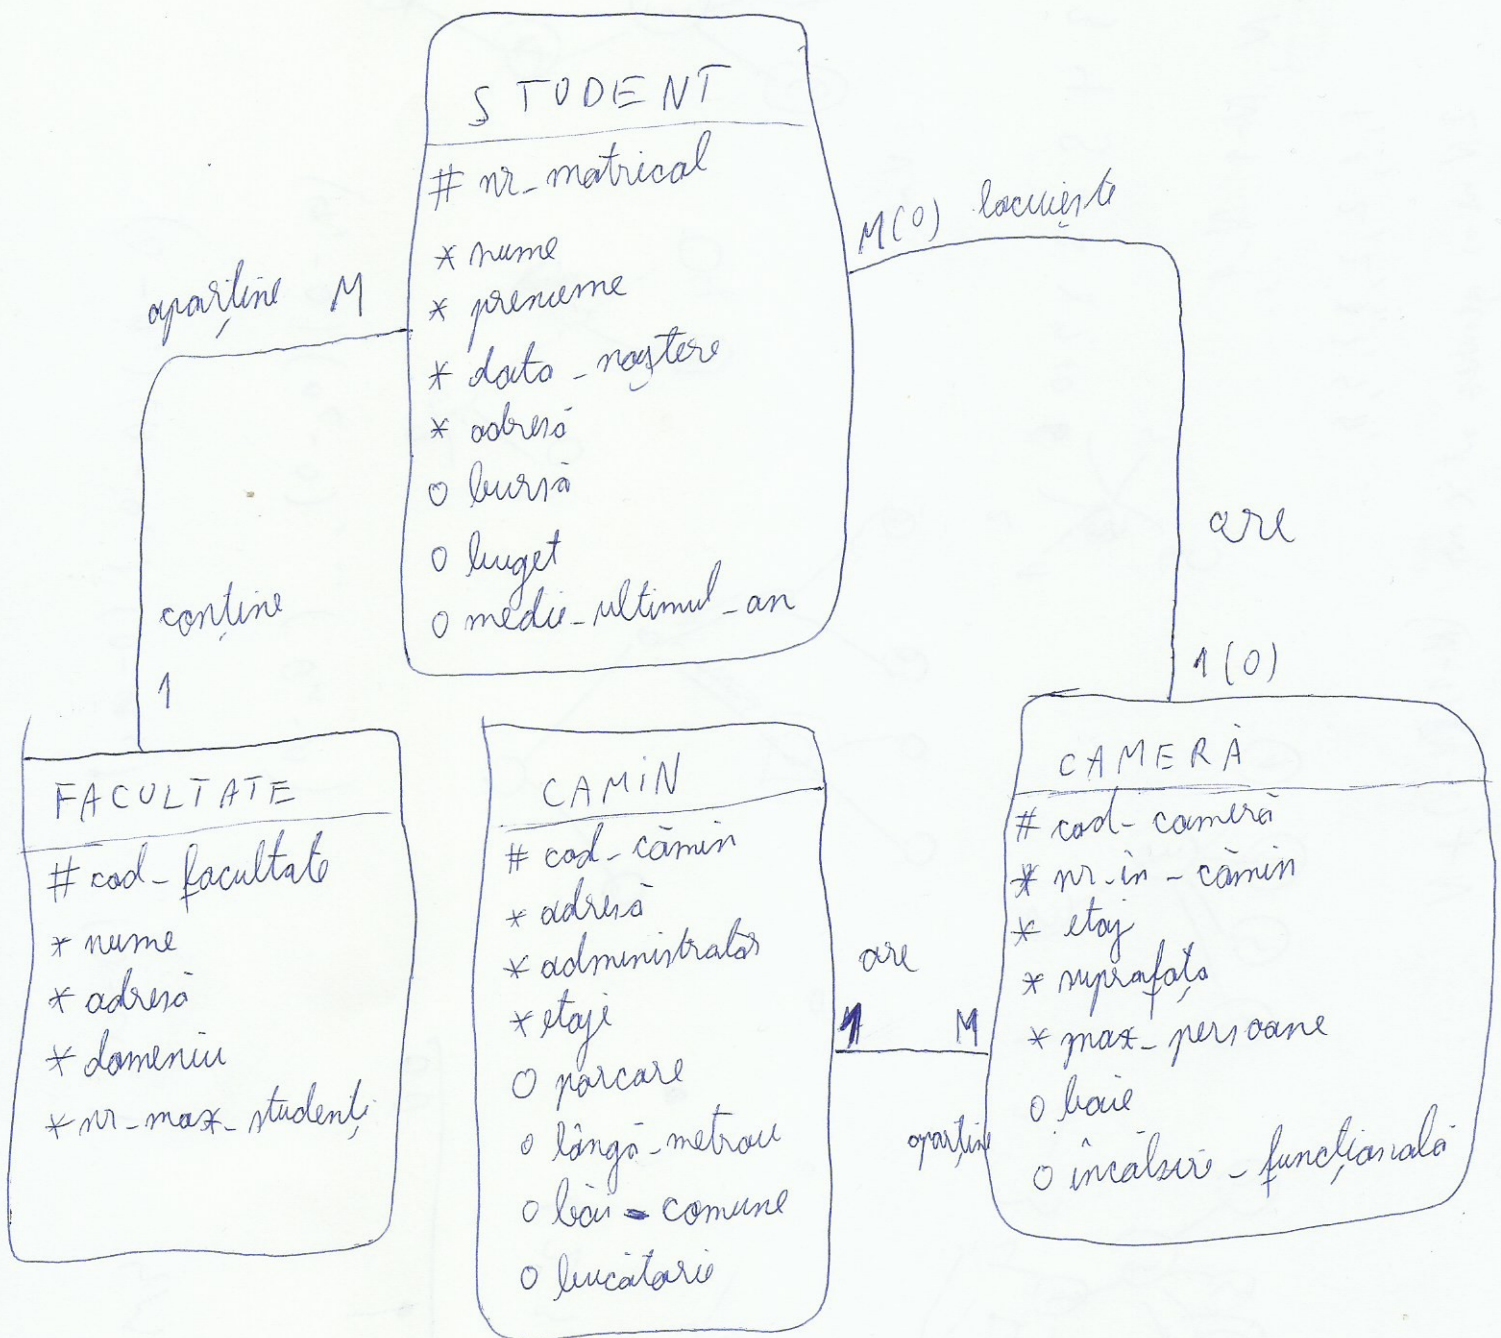 STUDENT
# nr_matricol
* nume
* prenume
* data_naștere
* adresă
o bursă
o buget
o medie_ultimul_an
aparține M
conține
1
M(0) locuiește
are
1(0)
FACULTATE
# cod_facultate
* nume
* adresă
* domeniu
* nr_max_studenți
CAMIN
# cod_cămin
* adresă
* administrator
* etaje
o parcare
o lângă_metrou
o băi_comune
o bucătarie
are
1 M
aparține
CAMERĂ
# cod_cameră
* nr_in_cămin
* etaj
* suprafața
* max_persoane
o baie
o încălzire_funcțională